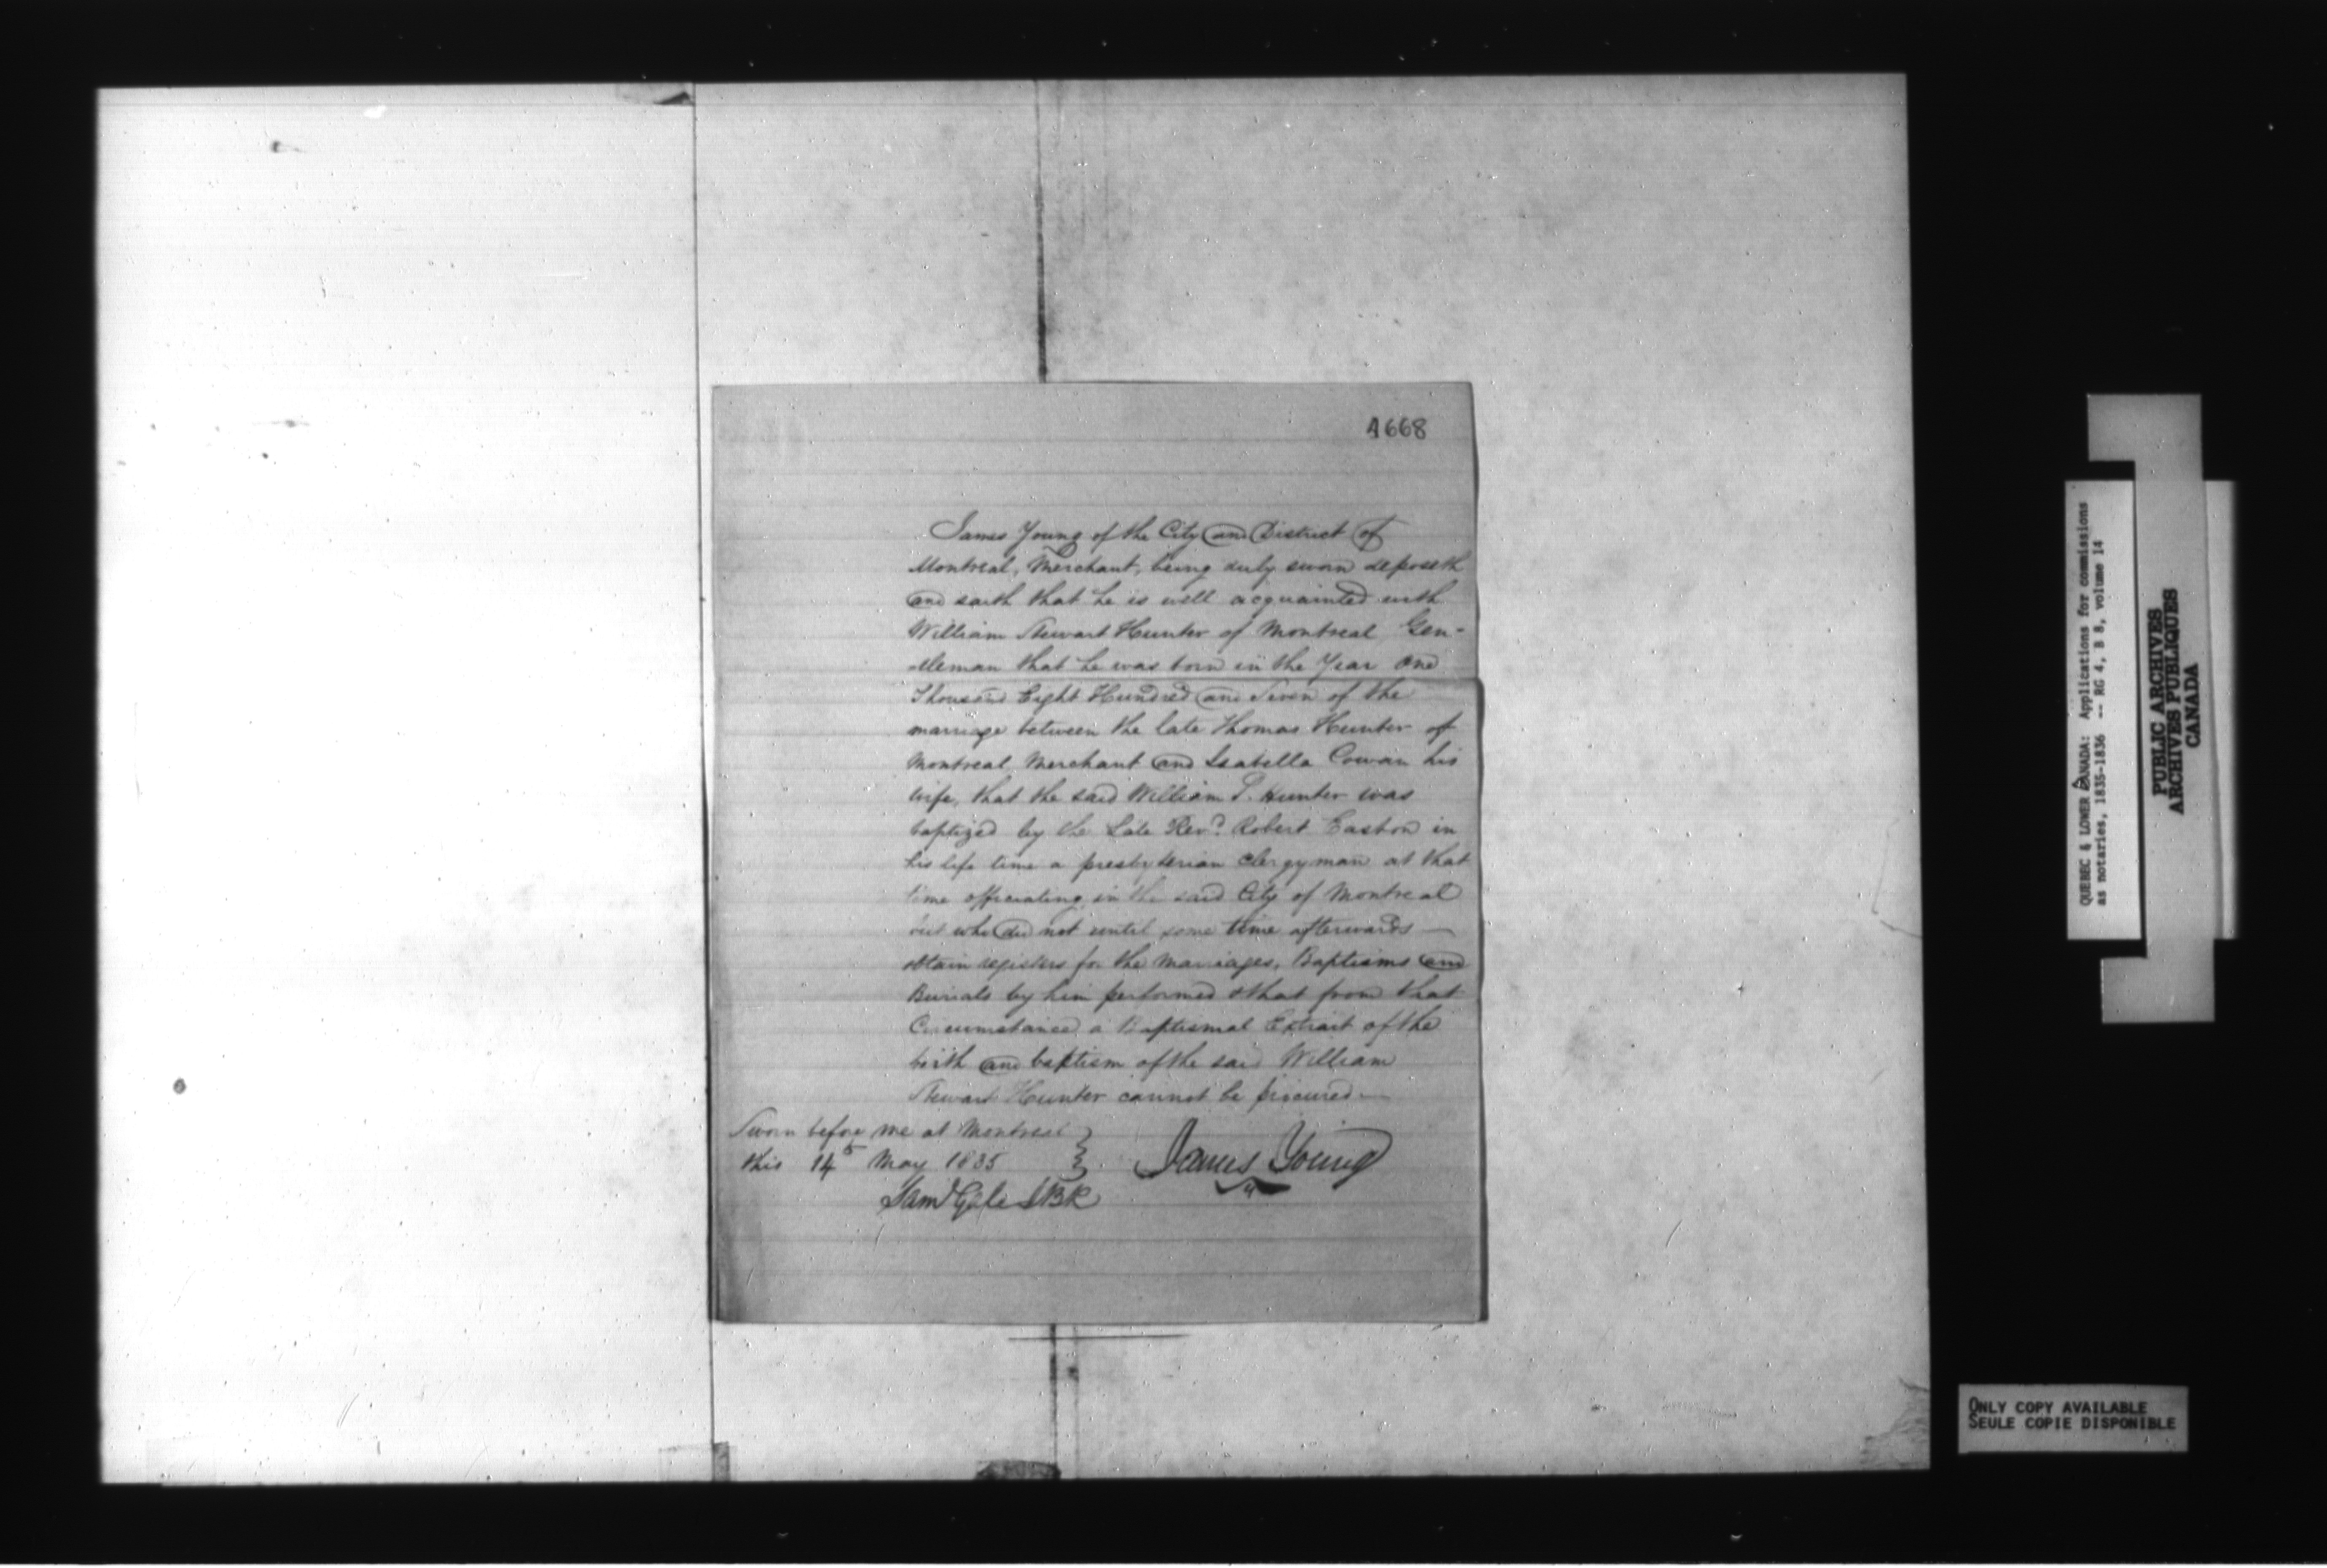 4668
James Young of the City and District of
Montreal, Merchant, being duly sworn deposeth
and saith that he is well acquainted with
William Stewart Hunter of Montreal Gen-
-tleman that he was born in the Year One
Thousand Eight Hundred and Seven of the
marriage between the late Thomas Hunter of
Montreal Merchant and Isabella Cowan his
wife, that the said William S. Hunter was
baptized by the Late Revd. Robert Easton in
his life time a presbyterian Clergyman at that
time officiating in the said City of Montreal
but who did not until some time afterwards —
obtain registers for the Marriages, Baptisms and
Burials by him performed & that from that
Circumstance a Baptismal Extrait of the
birth and baptism of the said William
Stewart Hunter cannot be procured —
Sworn before me at Montreal
this 14th May 1835
James Young
Saml Gale JBR
QUEBEC & LOWER CANADA: Applications for commissions
as notaries, 1835-1836 -- RG 4, B 8, volume 14
PUBLIC ARCHIVES
ARCHIVES PUBLIQUES
CANADA
ONLY COPY AVAILABLE
SEULE COPIE DISPONIBLE